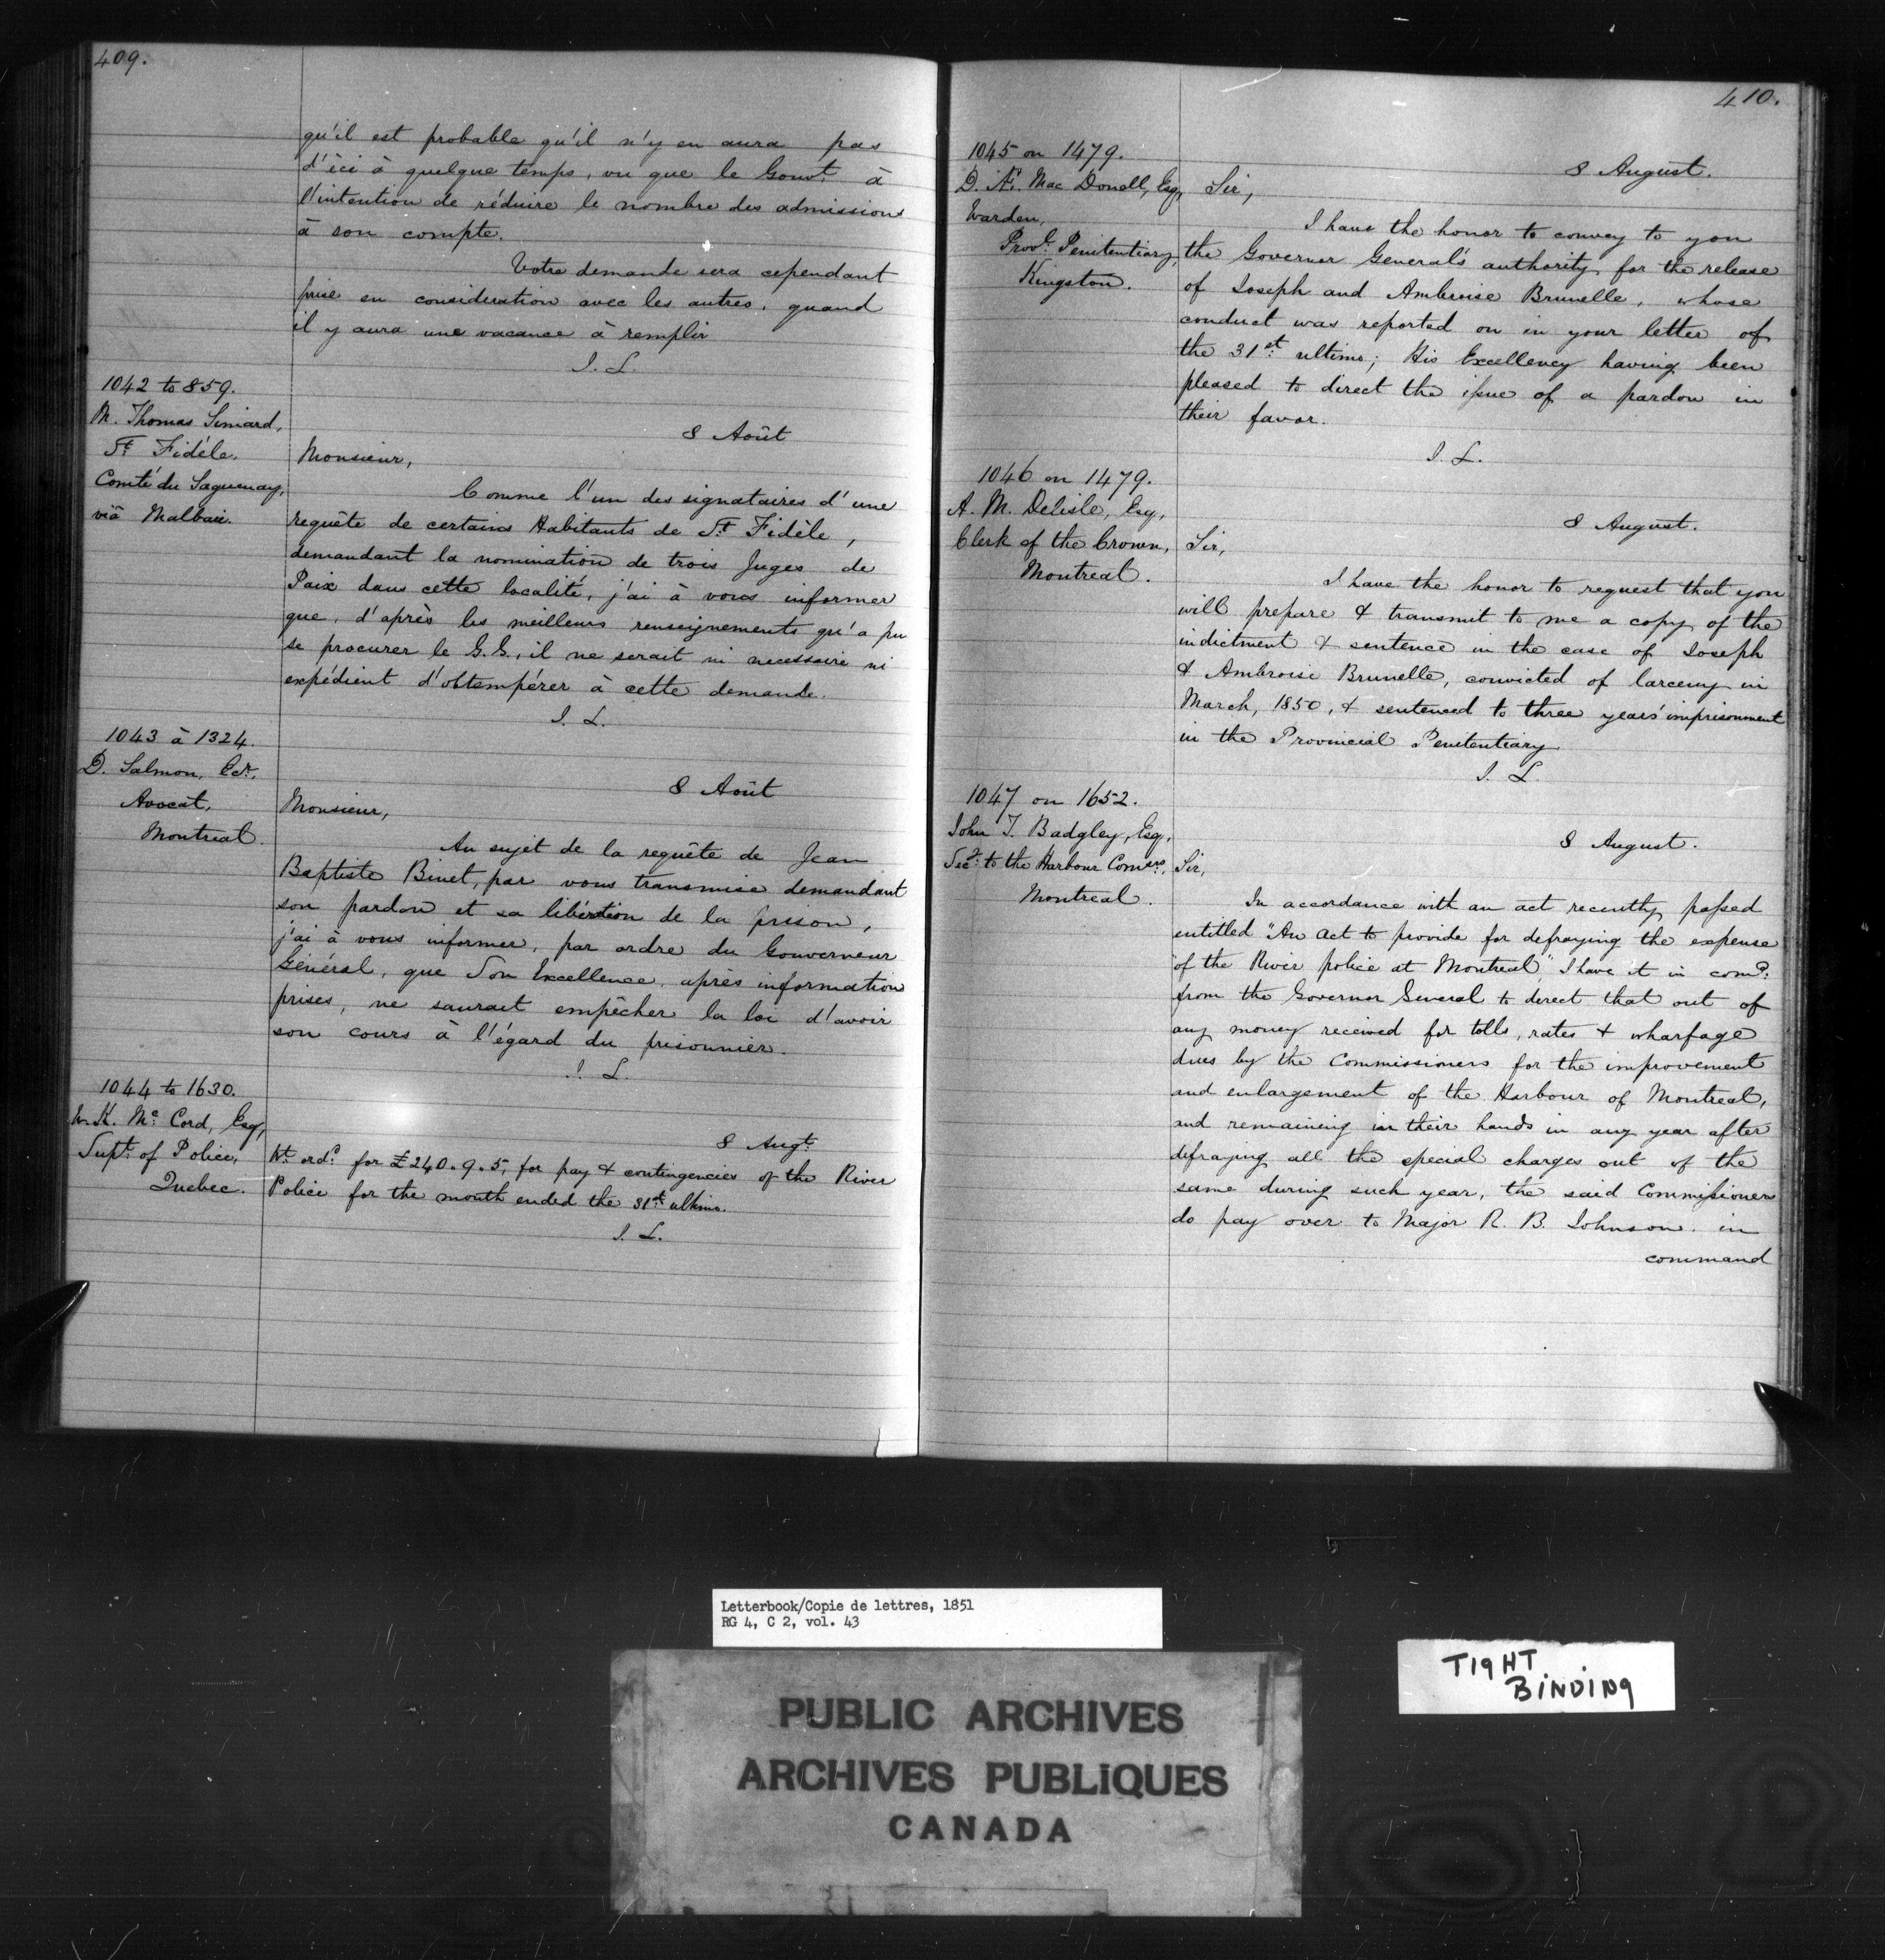 409.
qu'il est probable qu'il n'y en aura pas
d'ici à quelque temps, vu que le Gouvt. à
l'intention de réduire le nombre des admissions
à son compte.
Votre demande sera cependant
prise en considération avec les autres, quand
il y aura une vacance à remplir
J. L.
1042 to 859.
M. Thomas Simard,
St Fidèle,
Comté du Saguenay,
viâ Malbaie.
8 Août
Monsieur,
Comme l'un des signataires d'une
requête de certains Habitants de St. Fidèle,
demandant la nomination de trois Juges de
Paix dans cette localité, j'ai à vous informer
que, d'après les meilleurs renseignements qu'a pu
se procurer le G. G., il ne serait ni necessaire ni
expédient d'obtempérer à cette demande.
J. L.
1043 à 1324.
D. Salmon, Ecr.
Avocat,
Montreal.
8 Août
Monsieur,
Au sujet de la requête de Jean
Baptiste Binet, par vous transmise demandant
son pardon et sa libération de la prison,
j'ai à vous informer, par ordre du Gouverneur
Général, que Son Excellence, après information
prises, ne saurait empêcher la loi d'avoir
son cours à l'égard du prisonnier.
J. L.
1044 to 1630.
W. K. Mc Cord, Esq,
Supt. of Police,
Quebec.
8 Augt.
Wt. ord. for £240.9.5, for pay & contingencies of the River
Police for the month ended the 31st ultimo.
J. L.
410.
1045 on 1479.
D. Æ. Mac Donell, Esq,
Warden,
Provl. Penitentiary,
Kingston.
8 August.
Sir,
I have the honor to convey to you
the Governor General's authority for the release
of Joseph and Ambroise Brunelle, whose
conduct was reported on in your letter of
the 31st. ultimo; His Excellency having been
pleased to direct the issue of a pardon in
their favor.
J. L.
1046 on 1479.
A. M. Delisle, Esq,
Clerk of the Crown,
Montreal.
8 August.
Sir,
I have the honor to request that you
will prepare & transmit to me a copy of the
indictment & sentence in the case of Joseph
& Ambroise Brunelle, convicted of larceny in
March, 1850, & sentenced to three years' imprisonment
in the Provincial Penitentiary
J. L.
1047 on 1652.
John T. Badgley, Esq,
Secy. to the Harbour Comrs.,
Montreal.
8 August.
Sir,
In accordance with an act recently passed
entitled "An act to provide for defraying the expense
"of the River police at Montreal" I have it in comd.
from the Governor General to direct that out of
any money received for tolls, rates & wharfage
dues by the Commissioners for the improvement
and enlargement of the Harbour of Montreal,
and remaining in their hands in any year after
defraying all the special charges out of the
same during such year, the said Commissioners
do pay over to Major R. B. Johnson. in
command
Letterbook/Copie de lettres, 1851
RG 4, C 2, vol. 43
TIGHT
BINDING
PUBLIC ARCHIVES
ARCHIVES PUBLIQUES
CANADA